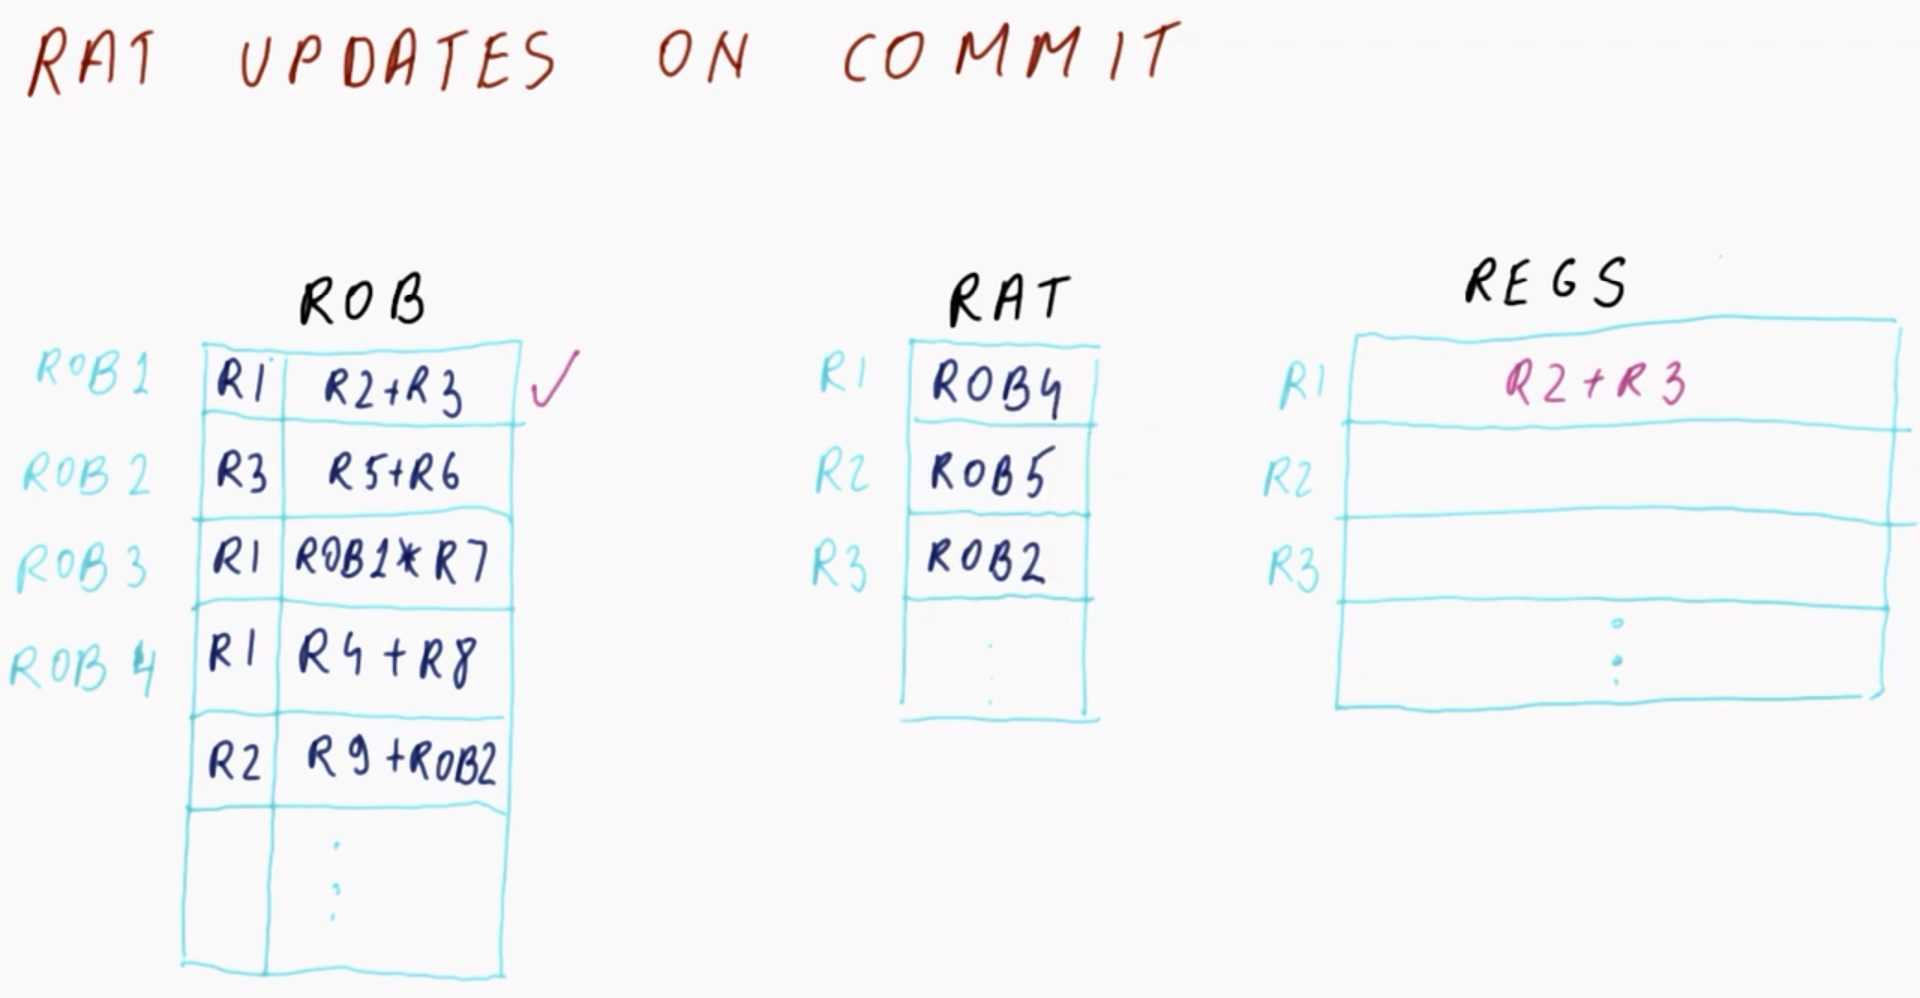 RAT UPDATES ON COMMIT
ROB
ROB1 R1 R2+R3 ✓
ROB2 R3 R5+R6
ROB3 R1 ROB1*R7
ROB4 R1 R4+R8
R2 R9+ROB2
RAT
R1 ROB4
R2 ROB5
R3 ROB2
REGS
R1 R2+R3
R2
R3